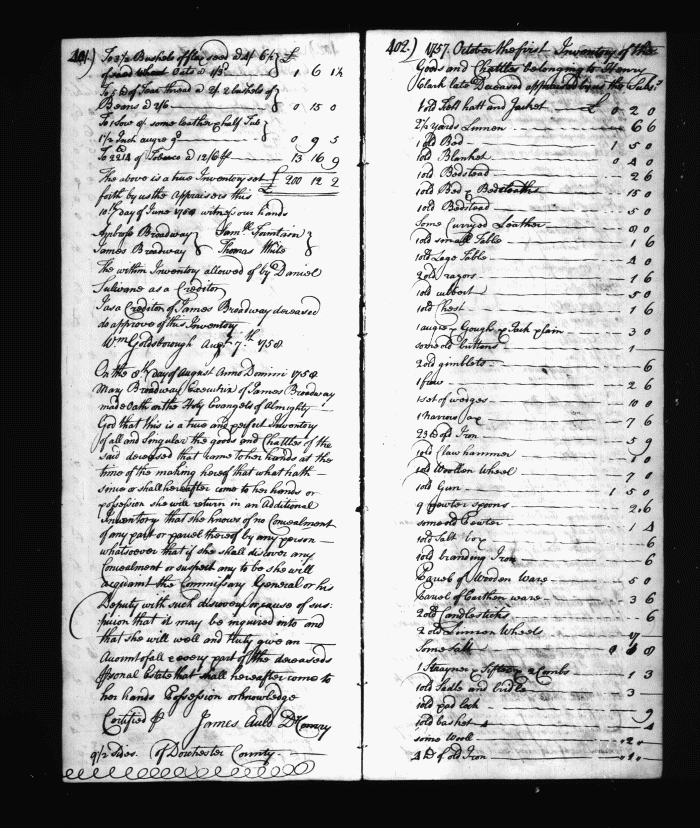 401.) To 3½ Bushels of flax seed @ 4/ 6½ £
of seed Wheat Oats @ 1/3 1 6 1½
To 5 lb of Tear thread @ 2/. 2 bushels of
Beans @ 2/6 0 15 0
To 1 Sow of some leather & half Tub
1½ Inch augre 9d 0 9 5
To 221 lb of Tobacco @ 12/6 13 16 9
The above is a true Inventory set £ 200 12 2
forth by us the Appraisers this
10th day of June 1758 witness our hands
Ambrose Broadway Saml Fountain
James Broadway Thomas White
The within Inventory allowed of by Daniel
Sulivane as a Creditor
I as a Creditor of James Broadway deceased
do approve of this Inventory
Wm Goldsborough Augt 7.th 1758
On the 8th day of August Anno Domini 1758
Mary Broadway Executrix of James Broadway
made Oath on the Holy Evangels of Almighty
God that this is a true and perfect Inventory
of all and Singular the goods and Chattles of the
said deceased that came to her hands at the
time of the making hereof that what hath
since or shall hereafter come to her hands or
possession she will return in an Additional
Inventory that she knows of no Concealment
of any part or parcel thereof by any person
whatsoever that if she shall discover any
Concealment or suspect any to be she will
acquaint the Commissary General or his
Deputy with such discovery or cause of sus:
picion that it may be inquired into and
that she will well and truly give an
Account of all & every part of the deceaseds
Personal Estate that shall hereafter come to
her hands Possession or knowledge
Certified P James Auld D Comry
9/2 sides. of Dorchester County
402.) 1757. October the first Inventory of the
Goods and Chattles belonging to Henry
Clark late Deceased appraised by us the Subs:
1 old Felt hatt and Jacket £ 0 2 0
2½ yards Linnen 6 6
1 old Bed 1 5 0
1 old Blanket 0 4 0
1 old Bedstead 2 6
1 old Bed & Bedcloaths 15 0
1 old Bedstead 5 0
Some Curryed Leather 8 0
1 old small Table 1 6
1 old Large Table 4 0
2 old razors 1 6
1 old cubbert 5 0
1 old Chest 1 6
1 augre & Gough & Jack plain 3 0
some old buttons 1
2 old gimblets 6
1 frow 2 6
1 set of wedges 10 0
1 narrow ax 7 6
23 lb old Iron 5 9
1 old Claw hammer 1 0
1 old Woollen Wheel 7 0
1 old Gun 1 5 0
9 pewter spoons 2.6
some old Pewter 1 4
1 old Salt box 6
1 old branding Iron 6
Parcel of Wooden Ware 5 0
Parcel of Earthen ware 3 6
2 old Candlesticks 6
2 old Linnen Wheel
Some Salt 8
1 Strayner & Sifter & 2 Combs 1 3
1 old Sadle and bridle 3
1 old pad lock 9
1 old basket 4
some Wooll 2
4 lb of old Iron 1